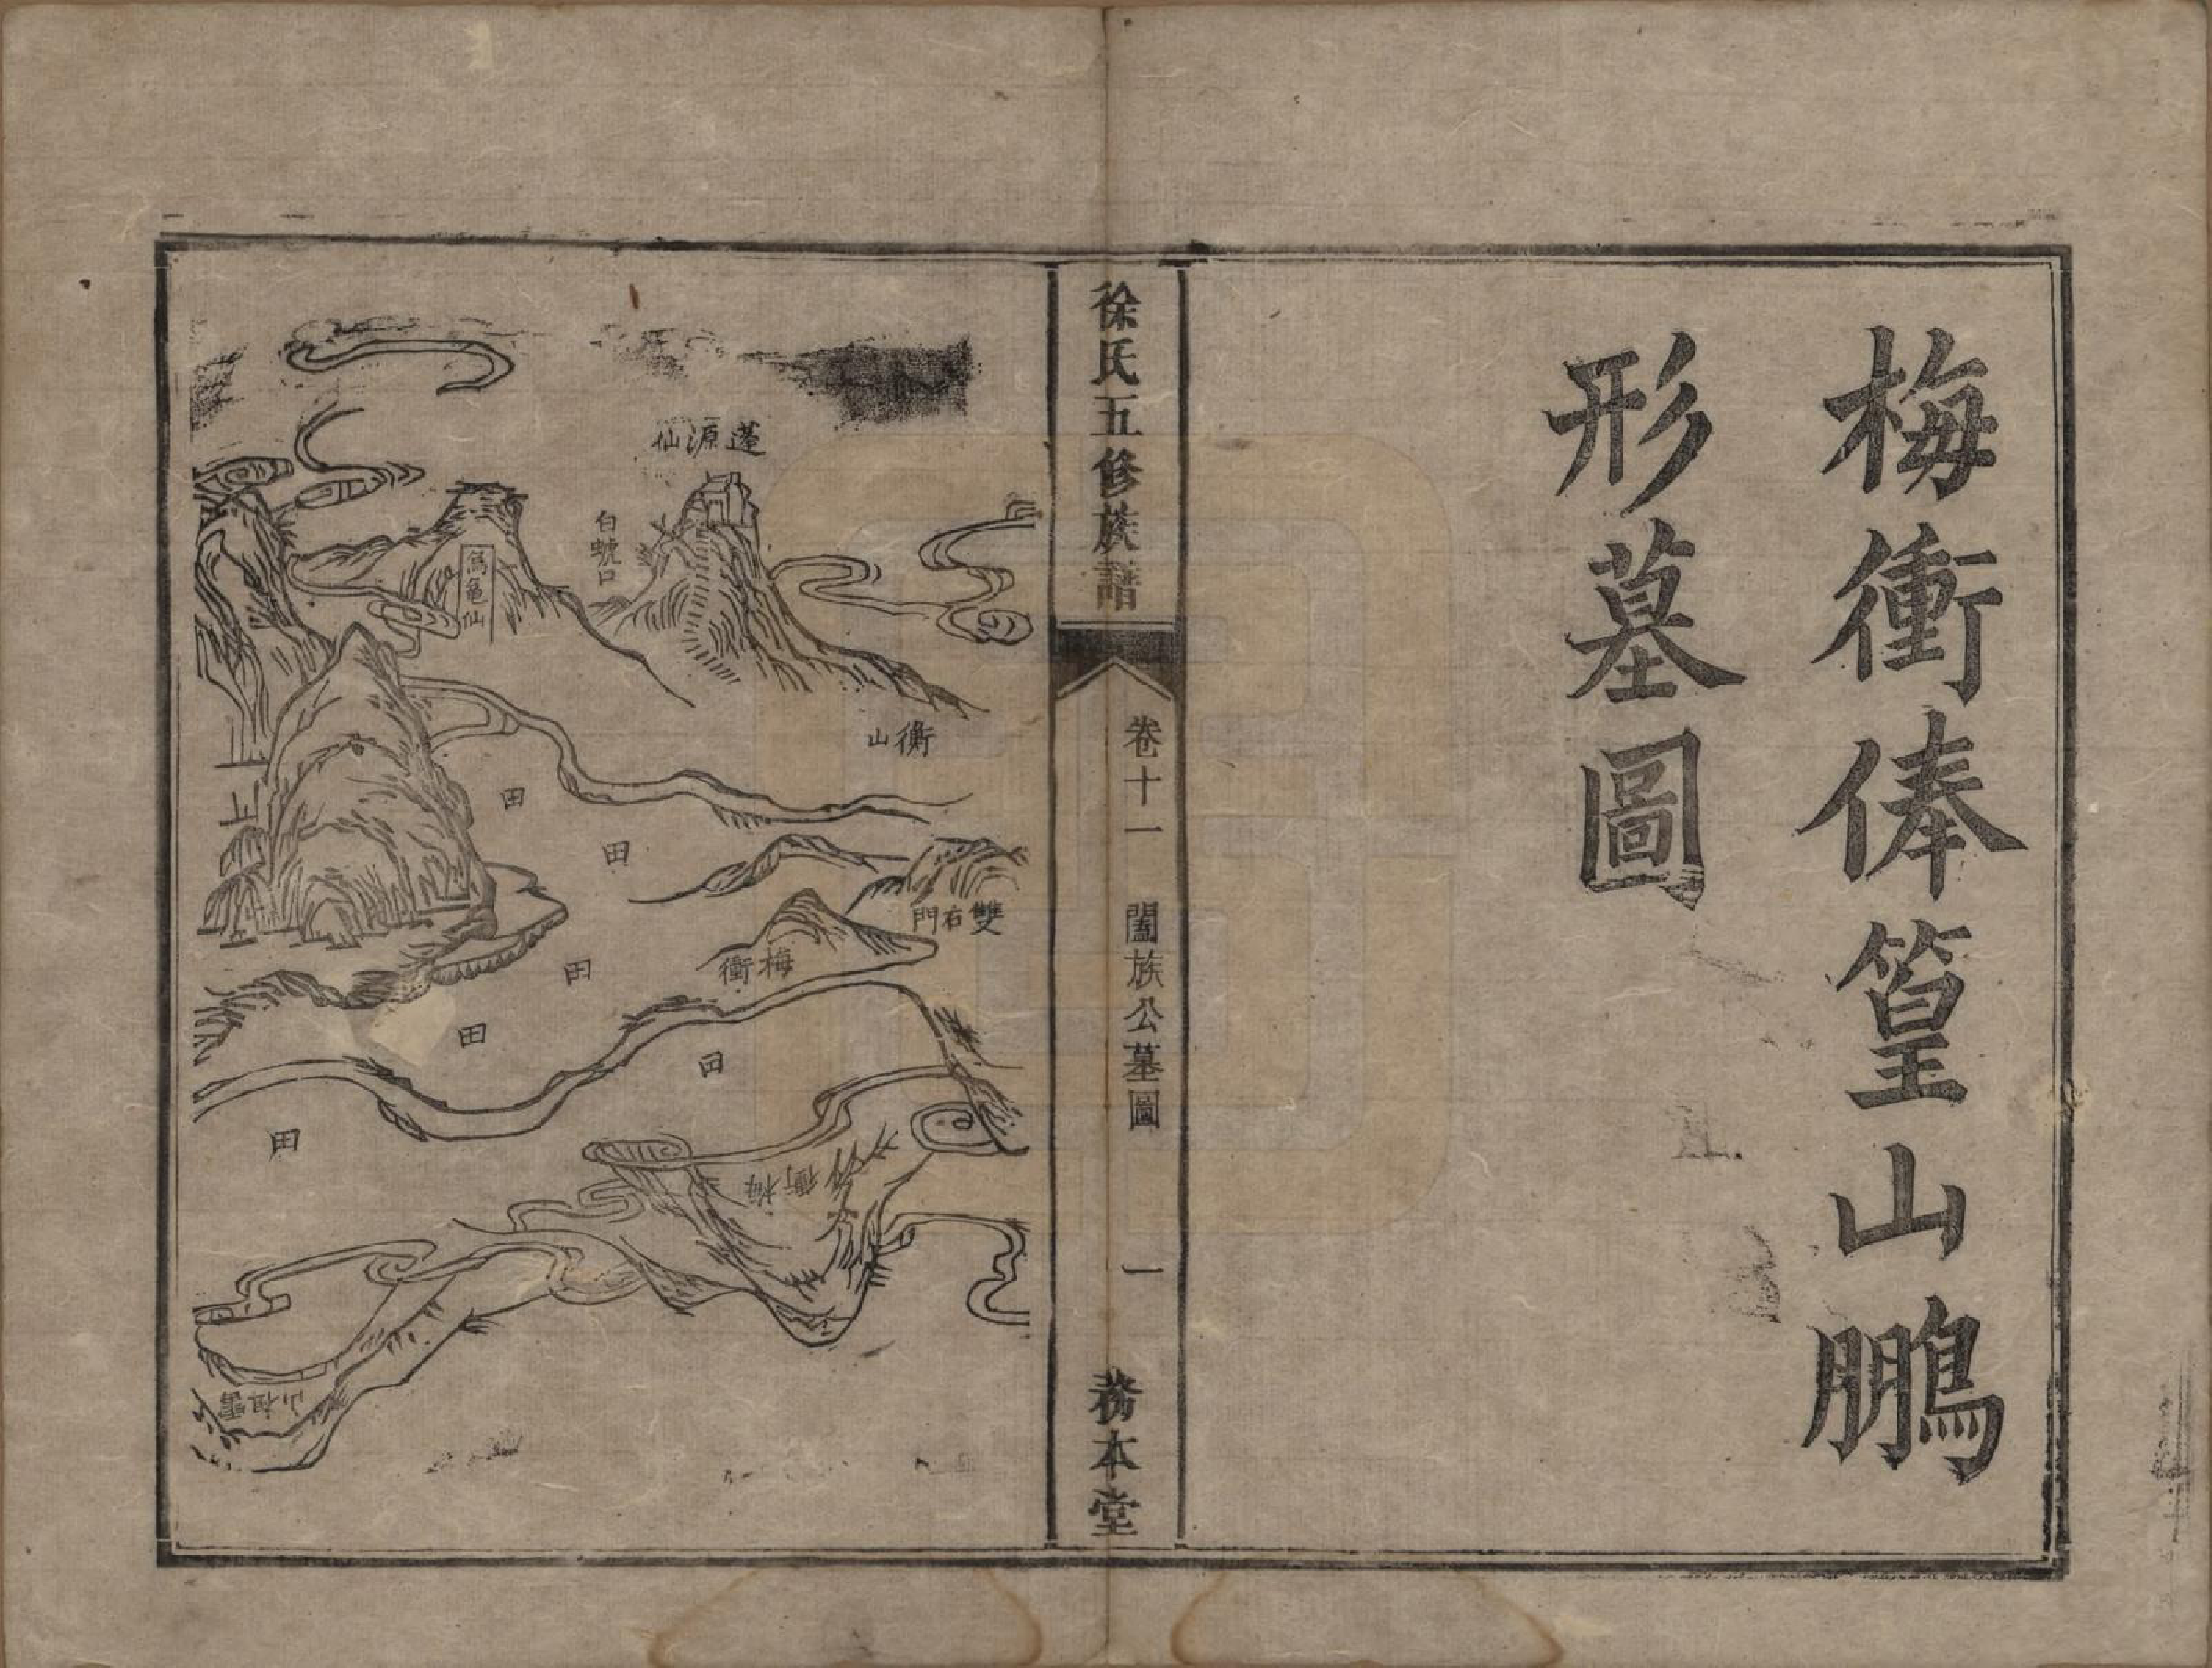 梅衝俸篁山鵬
形墓圖
徐氏五修族譜
卷十一 闔族公墓圖
一
務本堂
蓬源仙
白虢口
為龜仙
衡山
田
田
雙右門
梅衝
田
田
田
田
梅衝
雷祖山